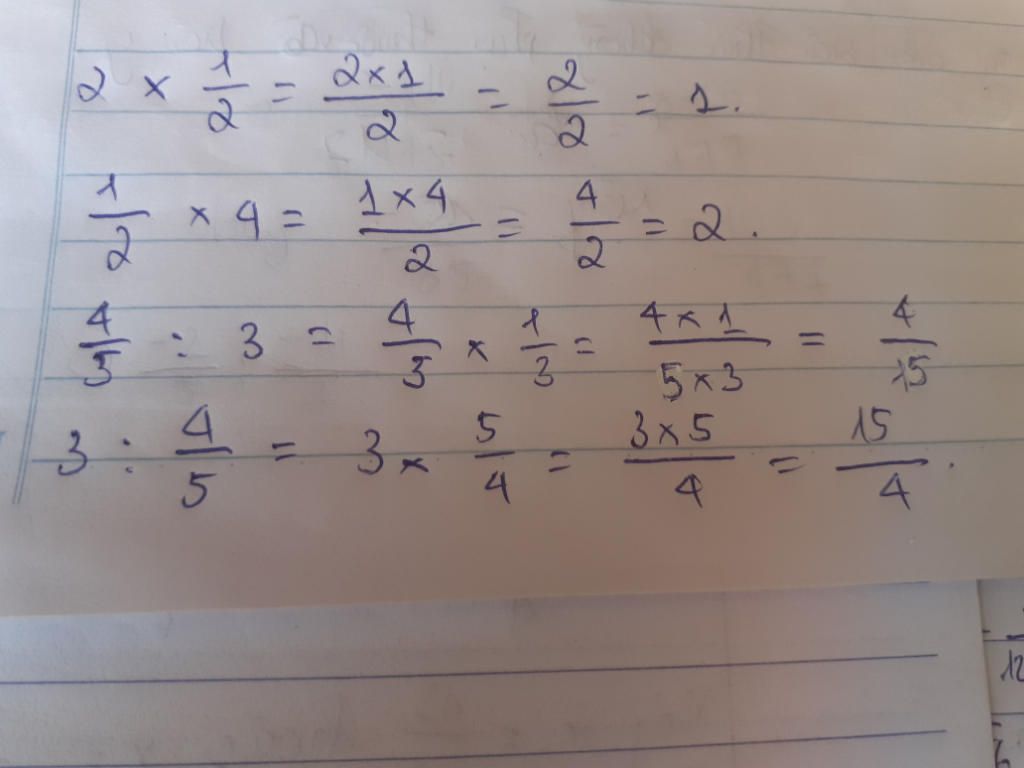 2 × 1/2 = (2×1)/2 = 2/2 = 1.
1/2 × 4 = (1×4)/2 = 4/2 = 2.
4/5 : 3 = 4/5 × 1/3 = (4×1)/(5×3) = 4/15
3 : 4/5 = 3 × 5/4 = (3×5)/4 = 15/4.
12